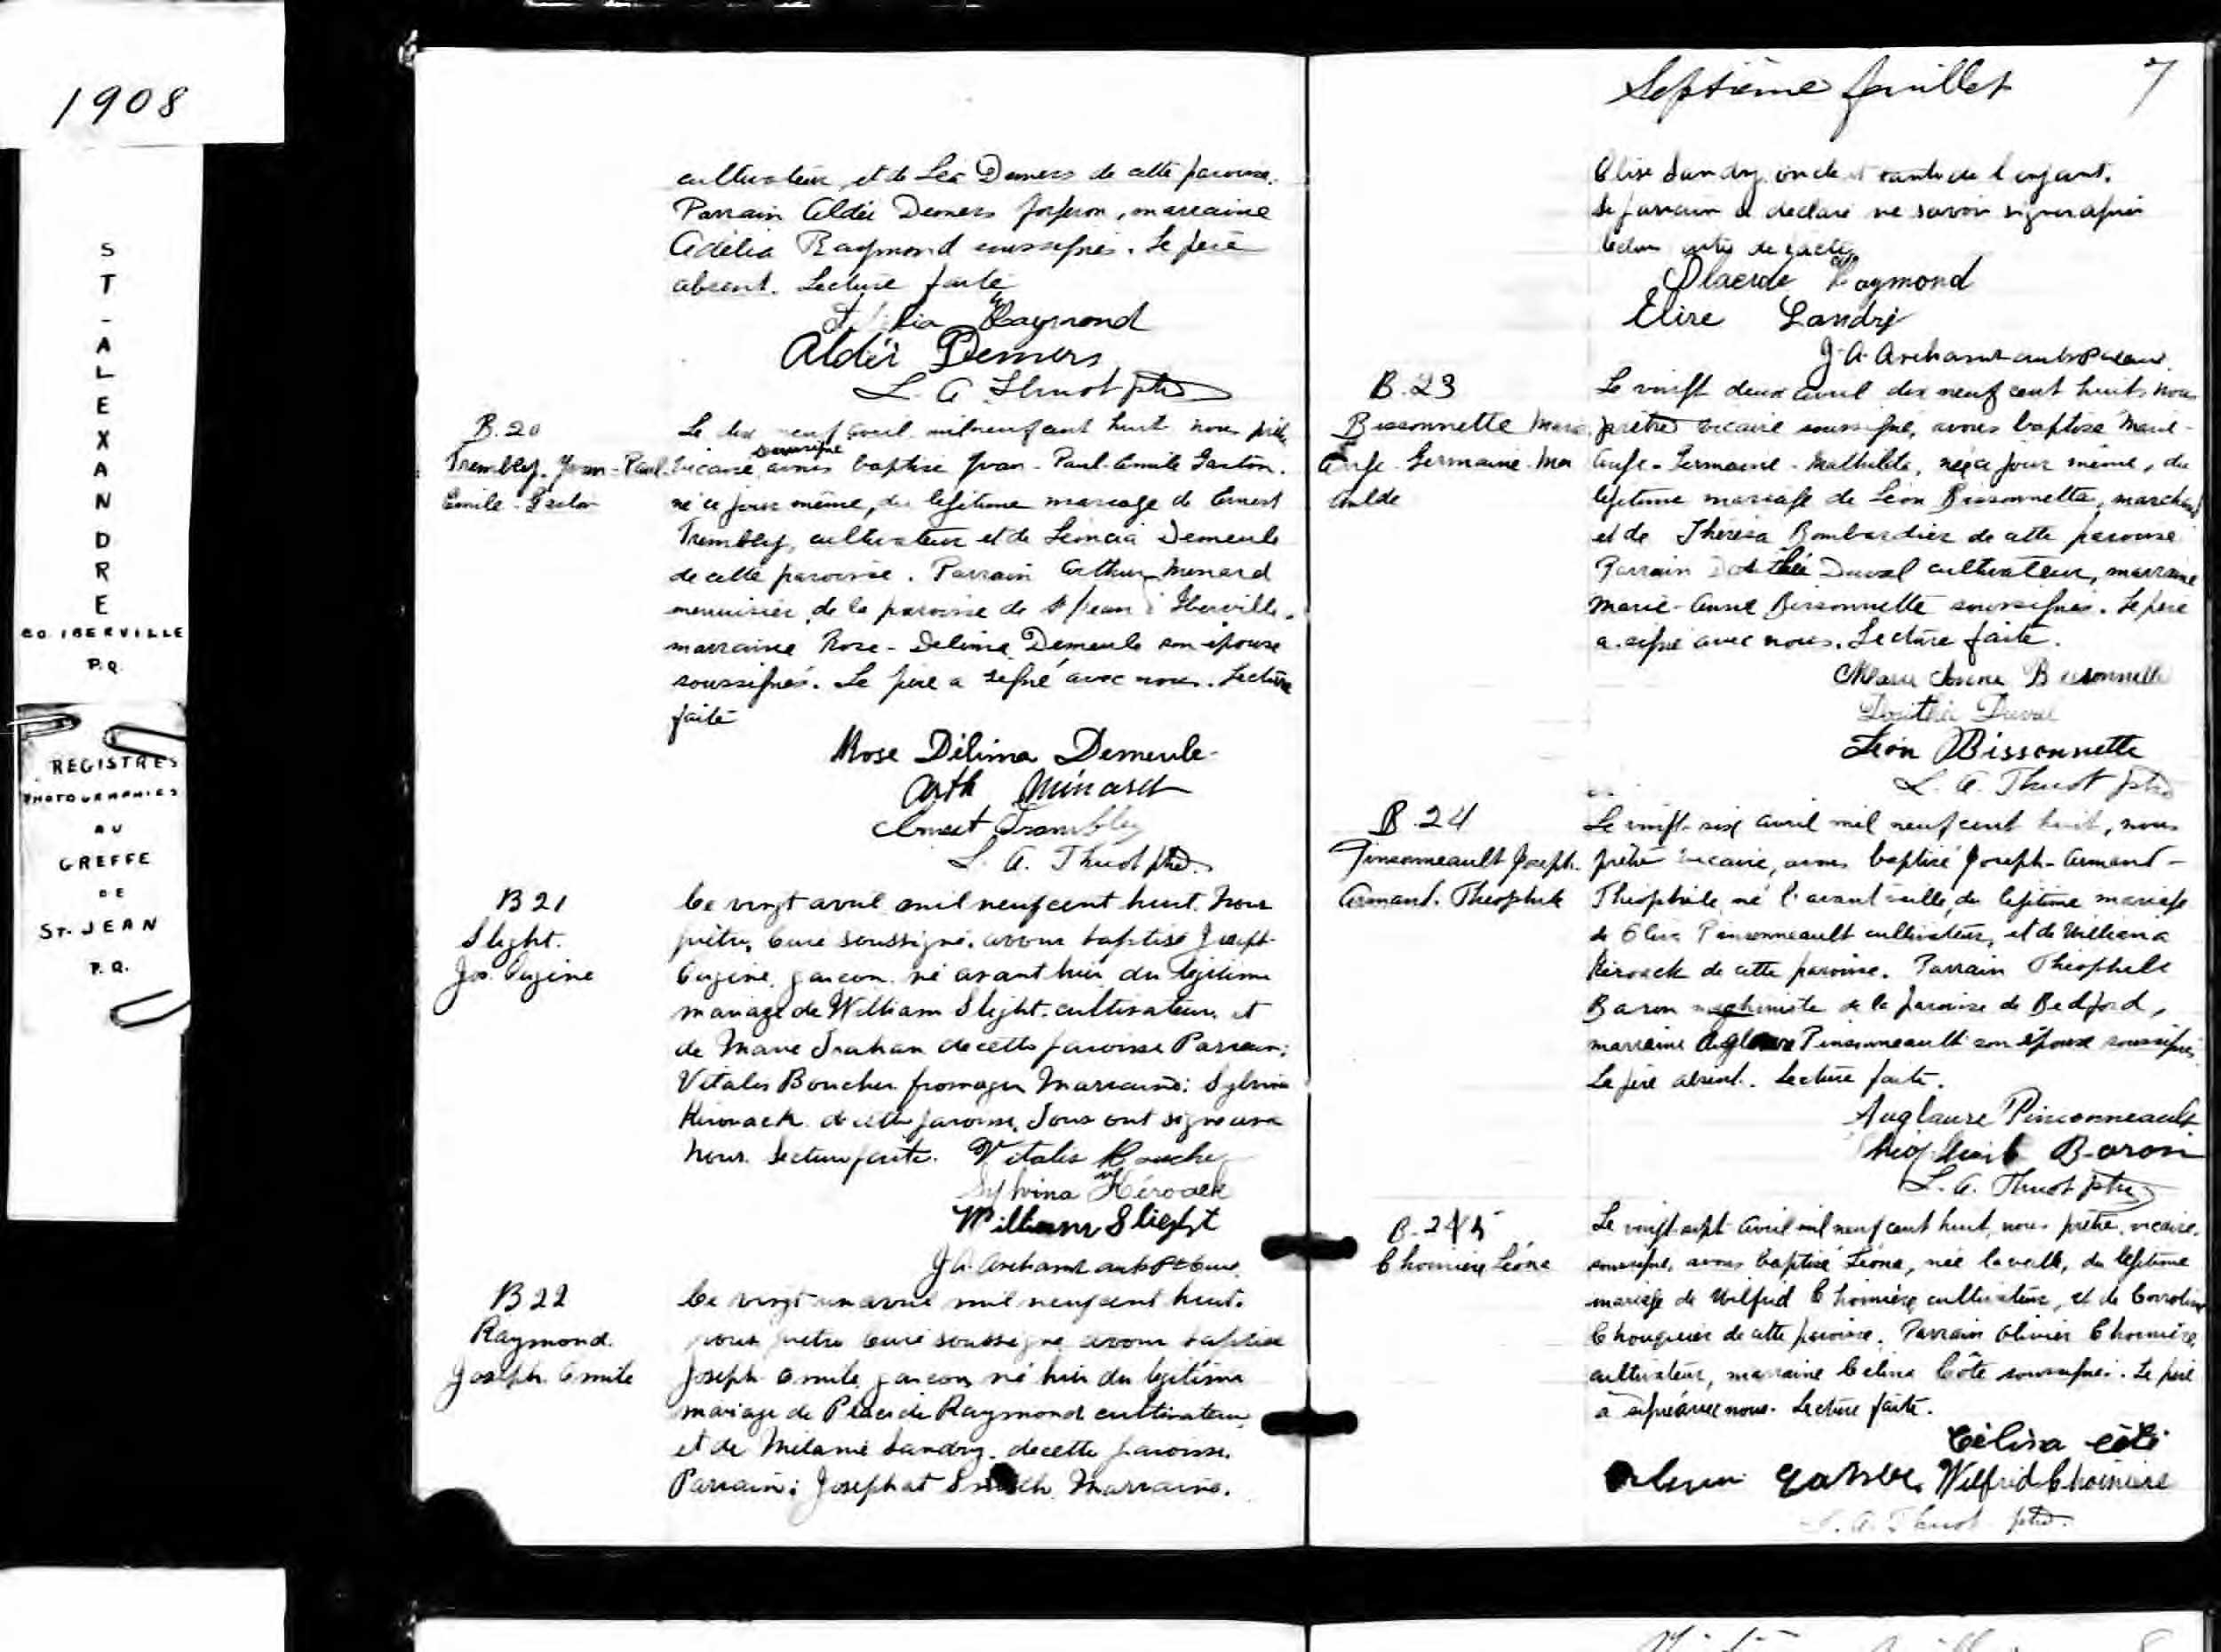 1908
ST-ALEXANDRE
CO. IBERVILLE
P.Q.
REGISTRES
PHOTOGRAPHIES
AU
GREFFE
DE
ST. JEAN
P.Q.
cultivateur, et de Léa Demers de cette paroisse.
Parrain Aldéi Demers forgeron, marraine
Adélia Raymond soussignés. Le père
absent. Lecture faite
Raymond
Aldéi Demers
L. A. Thuot ptre
B. 20
Tremblay. Yvan-Paul.
Emile-Gaston
Le dix neuf avril mil neuf cent huit nous prêtre
vicaire soussigné avons baptisé Yvan-Paul-Emile Gaston.
né ce jour même, du légitime mariage de Ernest
Tremblay, cultivateur et de Léoncia Demeule
de cette paroisse. Parrain Arthur Menard
menuisier, de la paroisse de St Jean d'Iberville.
marraine Rose-Delima Demeule son épouse
soussignés. Le père a signé avec nous. Lecture
faite
Rose Délima Demeule
Arth Ménard
Ernest Trembley
L. A. Thuot ptre.
B 21
Slight.
Jos. Eugène
Ce vingt avril mil neuf cent huit. Nous
prêtre, Curé soussigné, avons baptisé Joseph-
Eugène, garçon né avant hier du légitime
mariage de William Slight. cultivateur, et
de Marie de cette paroisse Parrain;
Vitalis Boucher fromager Marraine: Sylvina
Kérouack de cette paroisse. Tous ont signé avec
nous. Lecture faite. Vitalis Boucher
Sylvina Kéroack
William Slight
J. A. Archambault Ptre Curé
B 22
Raymond.
Joseph Emile
Ce vingt un avril mil neuf cent huit.
nous prêtre Curé soussigné avons baptisé
Joseph Emile, garçon né hier du légitime
mariage de Placide Raymond cultivateur
et de Mélanie Landry. de cette paroisse.
Parrain: Josephat Marraine.
Septième feuillet 7
Elise Landry oncle et tante de l'enfant.
Le parrain a déclaré ne savoir signer après
de l'acte
Placide Raymond
Elise Landry
J. A. Archambault Ptre Curé
B. 23
Bissonnette Marie
Ange-Germaine-Ma
thilde
Le vingt deux avril dix neuf cent huit nous
prêtre vicaire soussigné, avons baptisé Marie-
Ange-Germaine-Mathilde, née ce jour même, du
légitime mariage de Léon Bissonnette, marchand
et de Thérésa Bombardier de cette paroisse
Parrain Dosithée Duval cultivateur, marraine
Marie-Anne Bissonnette soussignés. Le père
a signé avec nous. Lecture faite.
Marie Anna Bissonnette
Dosithée Duval
Léon Bissonnette
L. A. Thuot ptre
B. 24
Pinsonneault Joseph.
Armand. Théophile
Le vingt-six avril mil neuf cent huit, nous
prêtre vicaire, avons baptisé Joseph-Armand-
Théophile né l'avant veille, du légitime mariage
de Pinsonneault cultivateur, et de Williana
Kéroack de cette paroisse. Parrain Théophile
Baron machiniste de la paroisse de Bedford,
marraine Pinsonneault son épouse soussignés
Le père absent. Lecture faite.
Auglaure Pinsonneault
Théophile Baron
L. A. Thuot ptre
B. 25
Choinière Léona
Le vingt-sept avril mil neuf cent huit, nous prêtre, vicaire,
soussigné, avons baptisé Léona, née la veille, du légitime
mariage de Wilfrid Choinière cultivateur, et de
de cette paroisse. Parrain Olivier Choinière,
cultivateur, marraine Célina Côté soussignés. Le père
a signé avec nous. Lecture faite.
Célina Côté
Wilfrid Choinière
L. A. Thuot ptre.